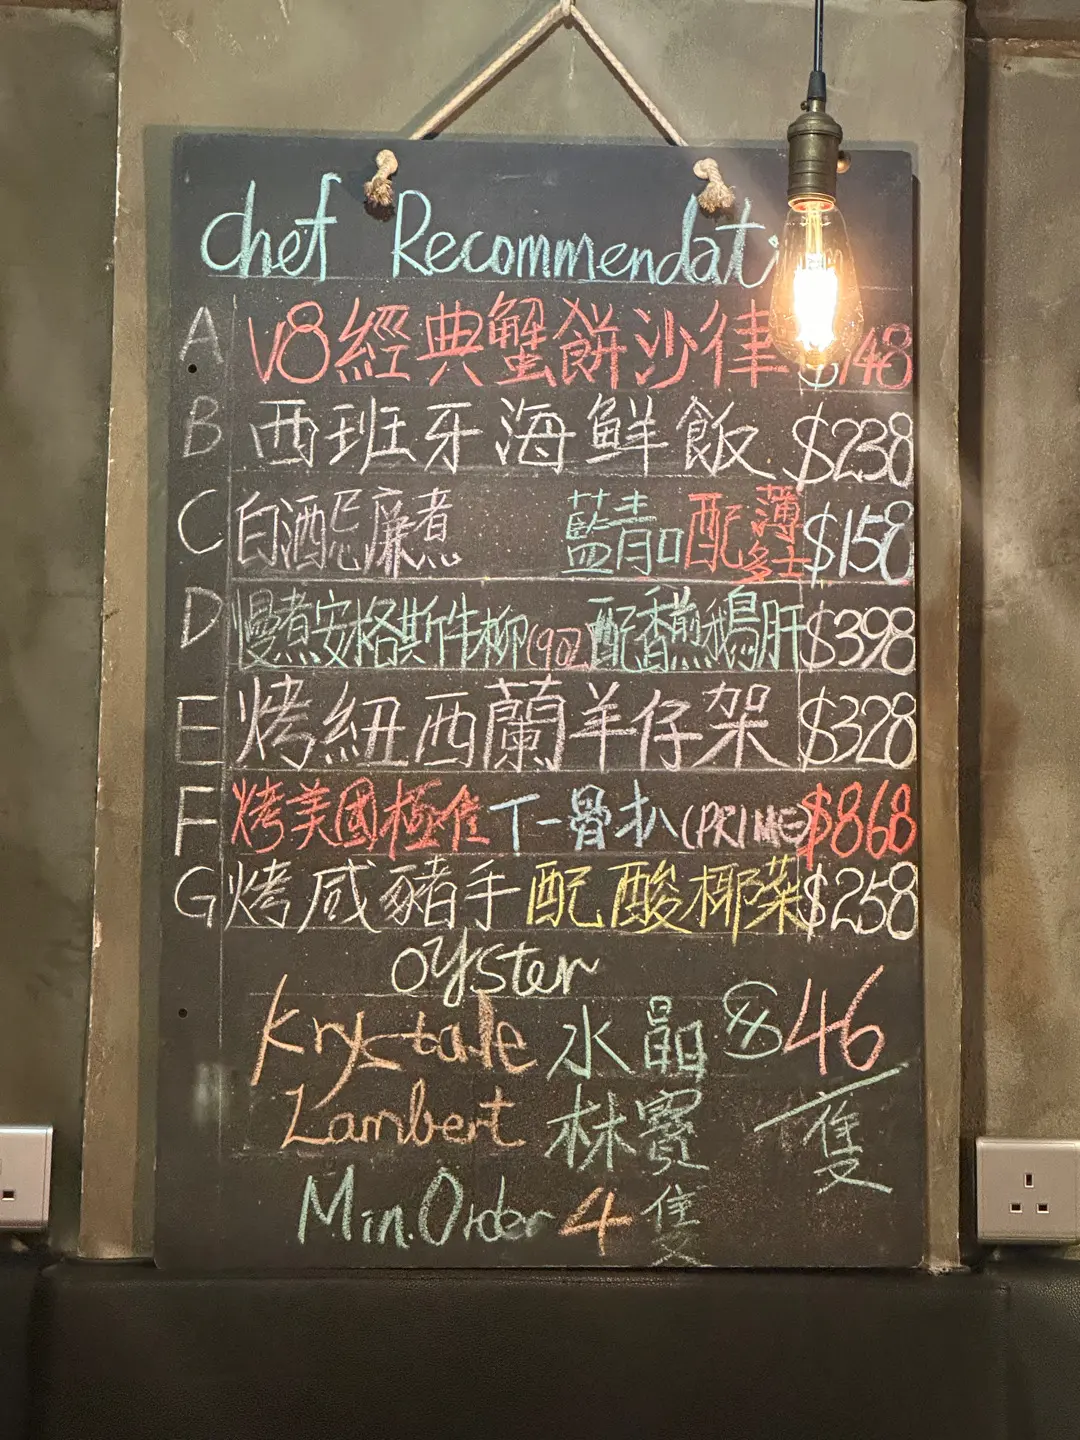 Chef Recommendati
A V8經典蟹餅沙律 $148
B 西班牙海鮮飯 $238
C 白酒忌廉煮 藍青口配薄多士 $158
D 慢煮安格斯牛柳(9oz)配香煎鵝肝 $398
E 烤紐西蘭羊仔架 $328
F 烤美國極佳丁一骨扒(PRIME) $868
G 烤咸豬手配酸椰菜 $258
oyster
Krystale 水晶 $46
Lambert 林寶 隻
Min.Order 4 隻